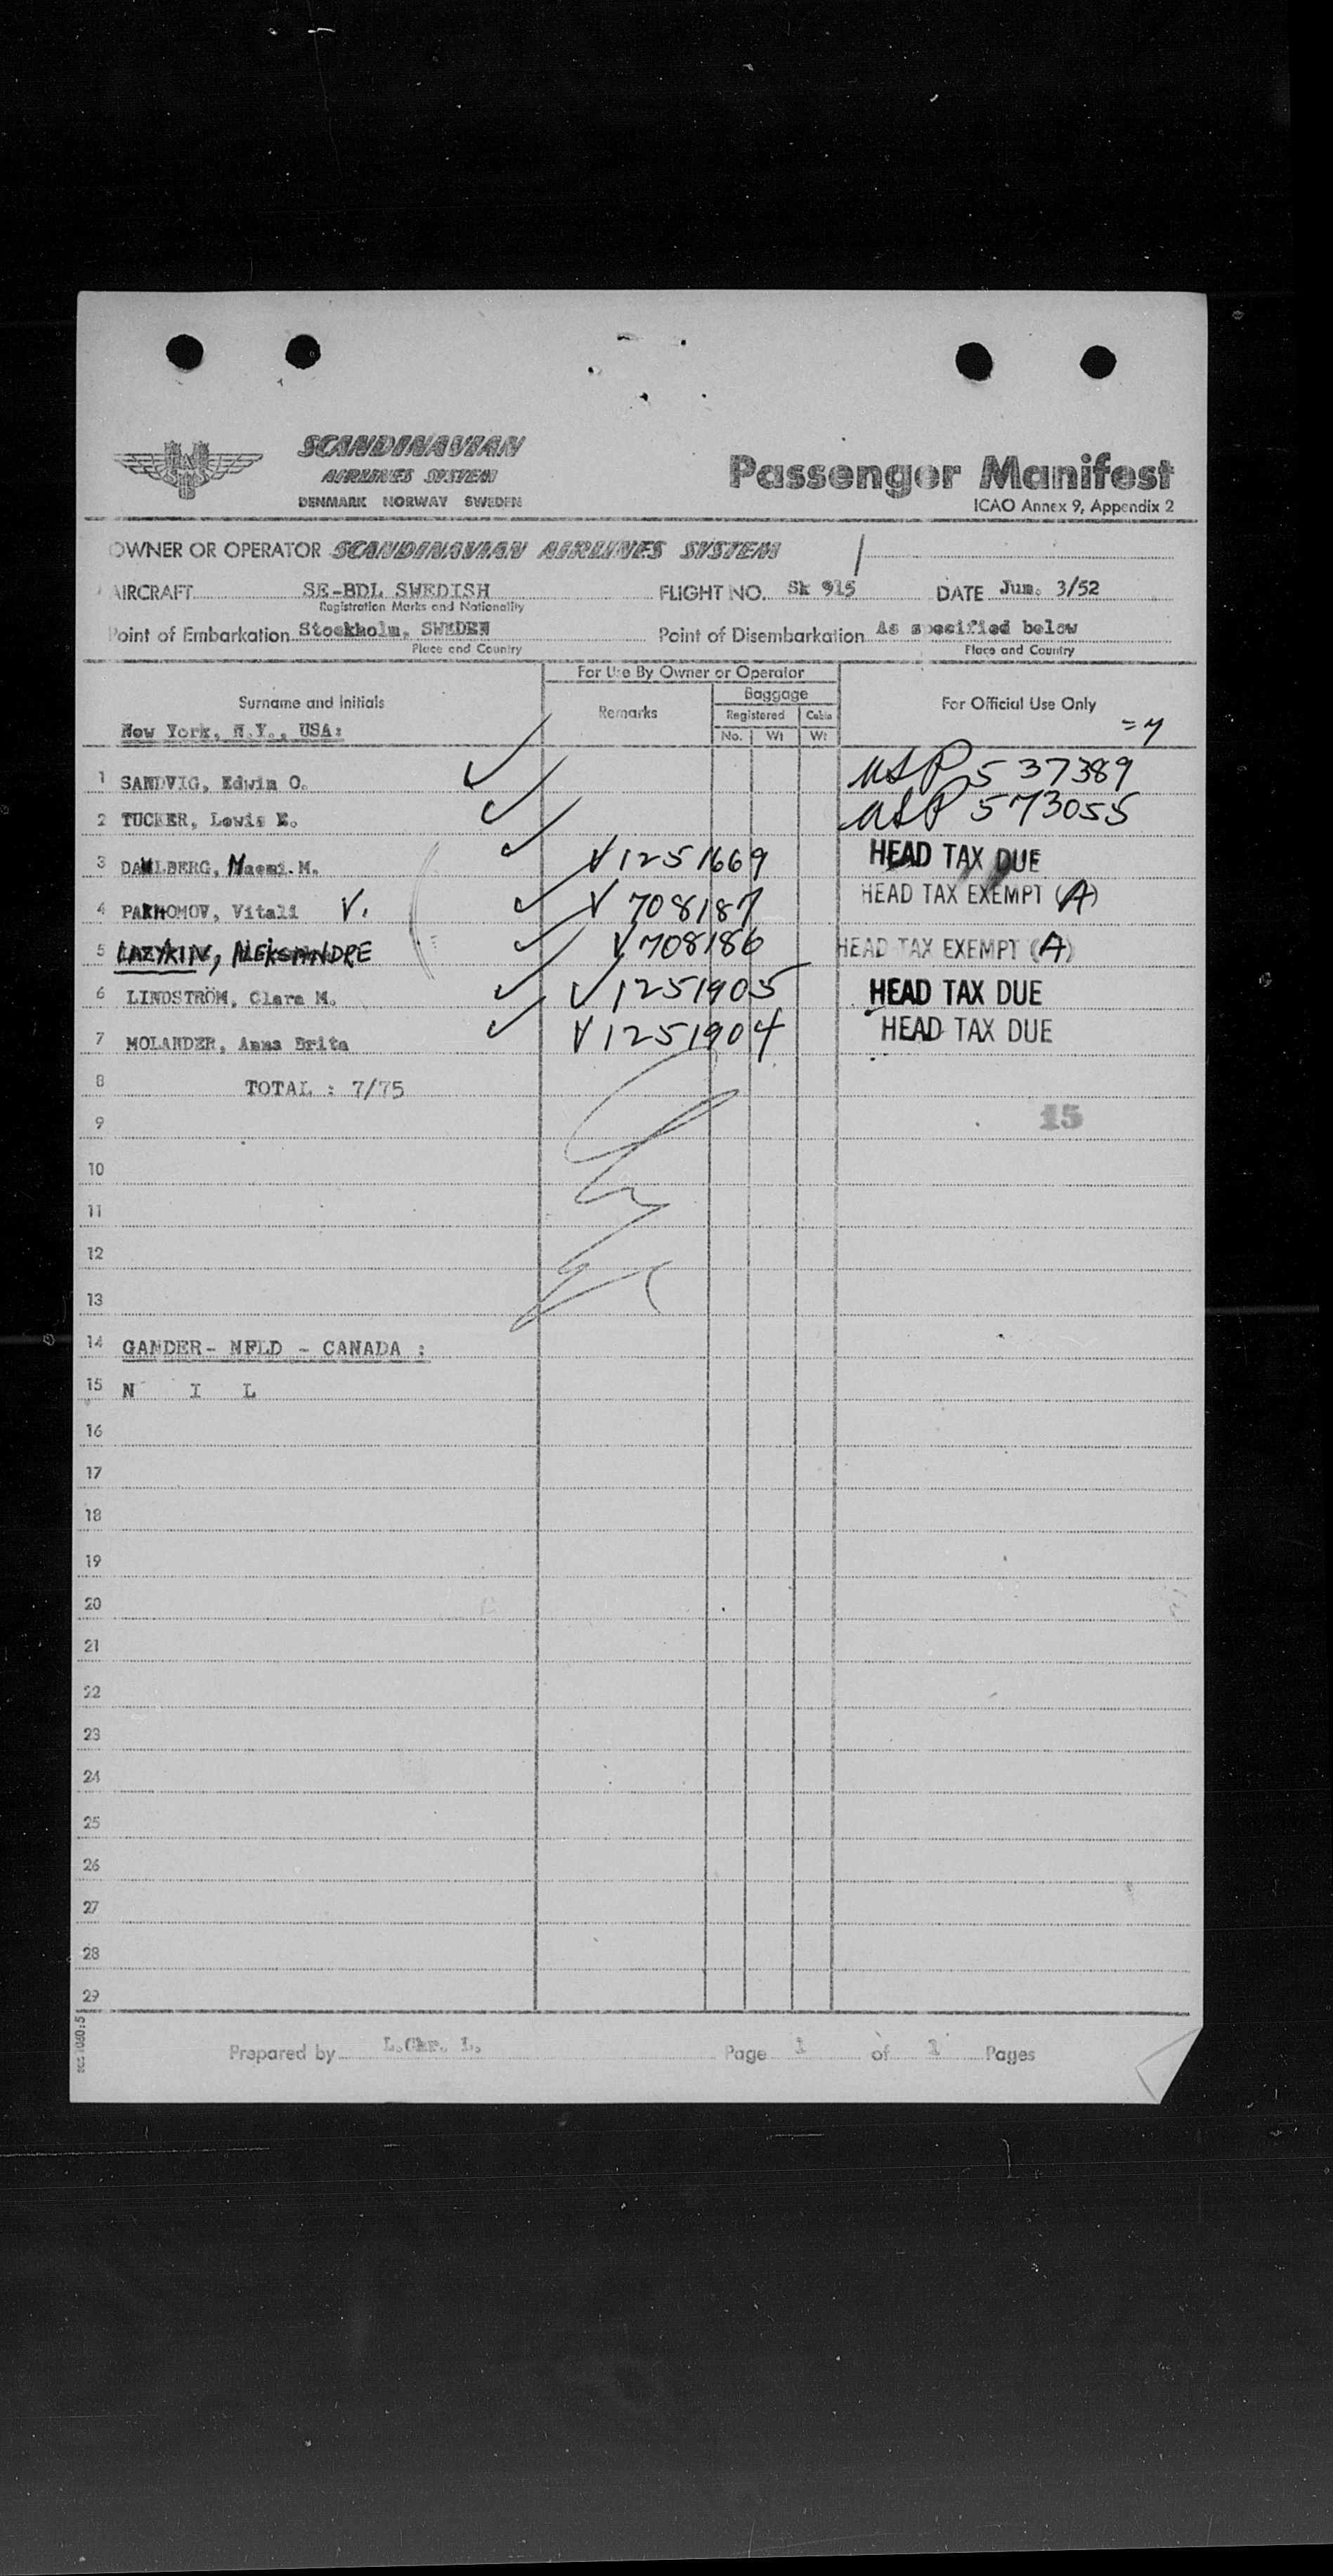 SCANDINAVIAN
AIRLINES SYSTEM
DENMARK NORWAY SWEDEN
Passenger Manifest
ICAO Annex 9, Appendix 2
OWNER OR OPERATOR SCANDINAVIAN AIRLINES SYSTEM
AIRCRAFT SE-BDL SWEDISH FLIGHT NO. SK 915 DATE Jun. 3/52
Registration Marks and Nationality
Point of Embarkation Stockholm, SWEDEN Point of Disembarkation As specified below
Place and Country Place and Country
For Use By Owner or Operator
Surname and Initials Remarks Baggage For Official Use Only
Registered Cabin
No. Wt Wt
New York, N.Y., USA: =7
1 SANDVIG, Edwin O. USP 537389
2 TUCKER, Lewis E. USP 573055
3 DAHLBERG, Naemi.M. V1251669 HEAD TAX DUE
4 PAKHOMOV, Vitali V. V 708187 HEAD TAX EXEMPT (A)
5 LAZYKIN, ALEKSANDRE V708186 HEAD TAX EXEMPT (A)
6 LINDSTRÖM, Clara M. V1251905 HEAD TAX DUE
7 MOLANDER, Anna Brita V1251904 HEAD TAX DUE
8 TOTAL : 7/75
15
9
10
11
12
13
14 GANDER- NFLD - CANADA :
15 N I L
16
17
18
19
20
21
22
23
24
25
26
27
28
29
Prepared by L.Chr. L. Page 1 of 1 Pages